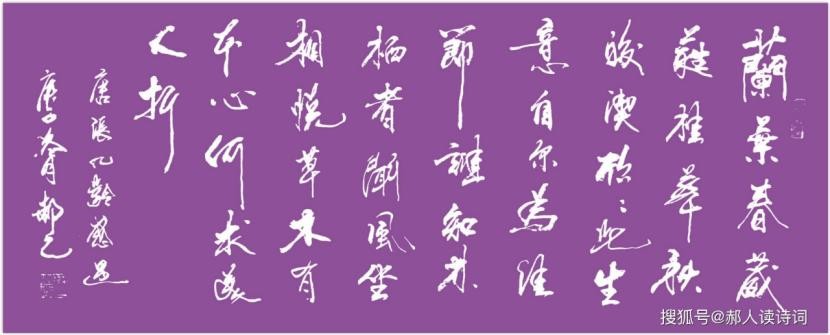 蘭葉春葳
蕤桂華秋
皎潔欣〻此生
意自尔為佳
節誰知林
栖者聞風坐
相悅草木有
本心何求美
人折
唐張九齡感遇
庚子
搜狐号@郝人读诗词